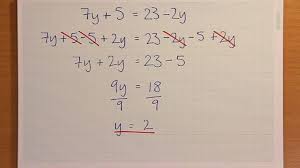 7y + 5 = 23 - 2y
7y + 5 - 5 + 2y = 23 - 2y - 5 + 2y
7y + 2y = 23 - 5
9y = 18
9 9
y = 2